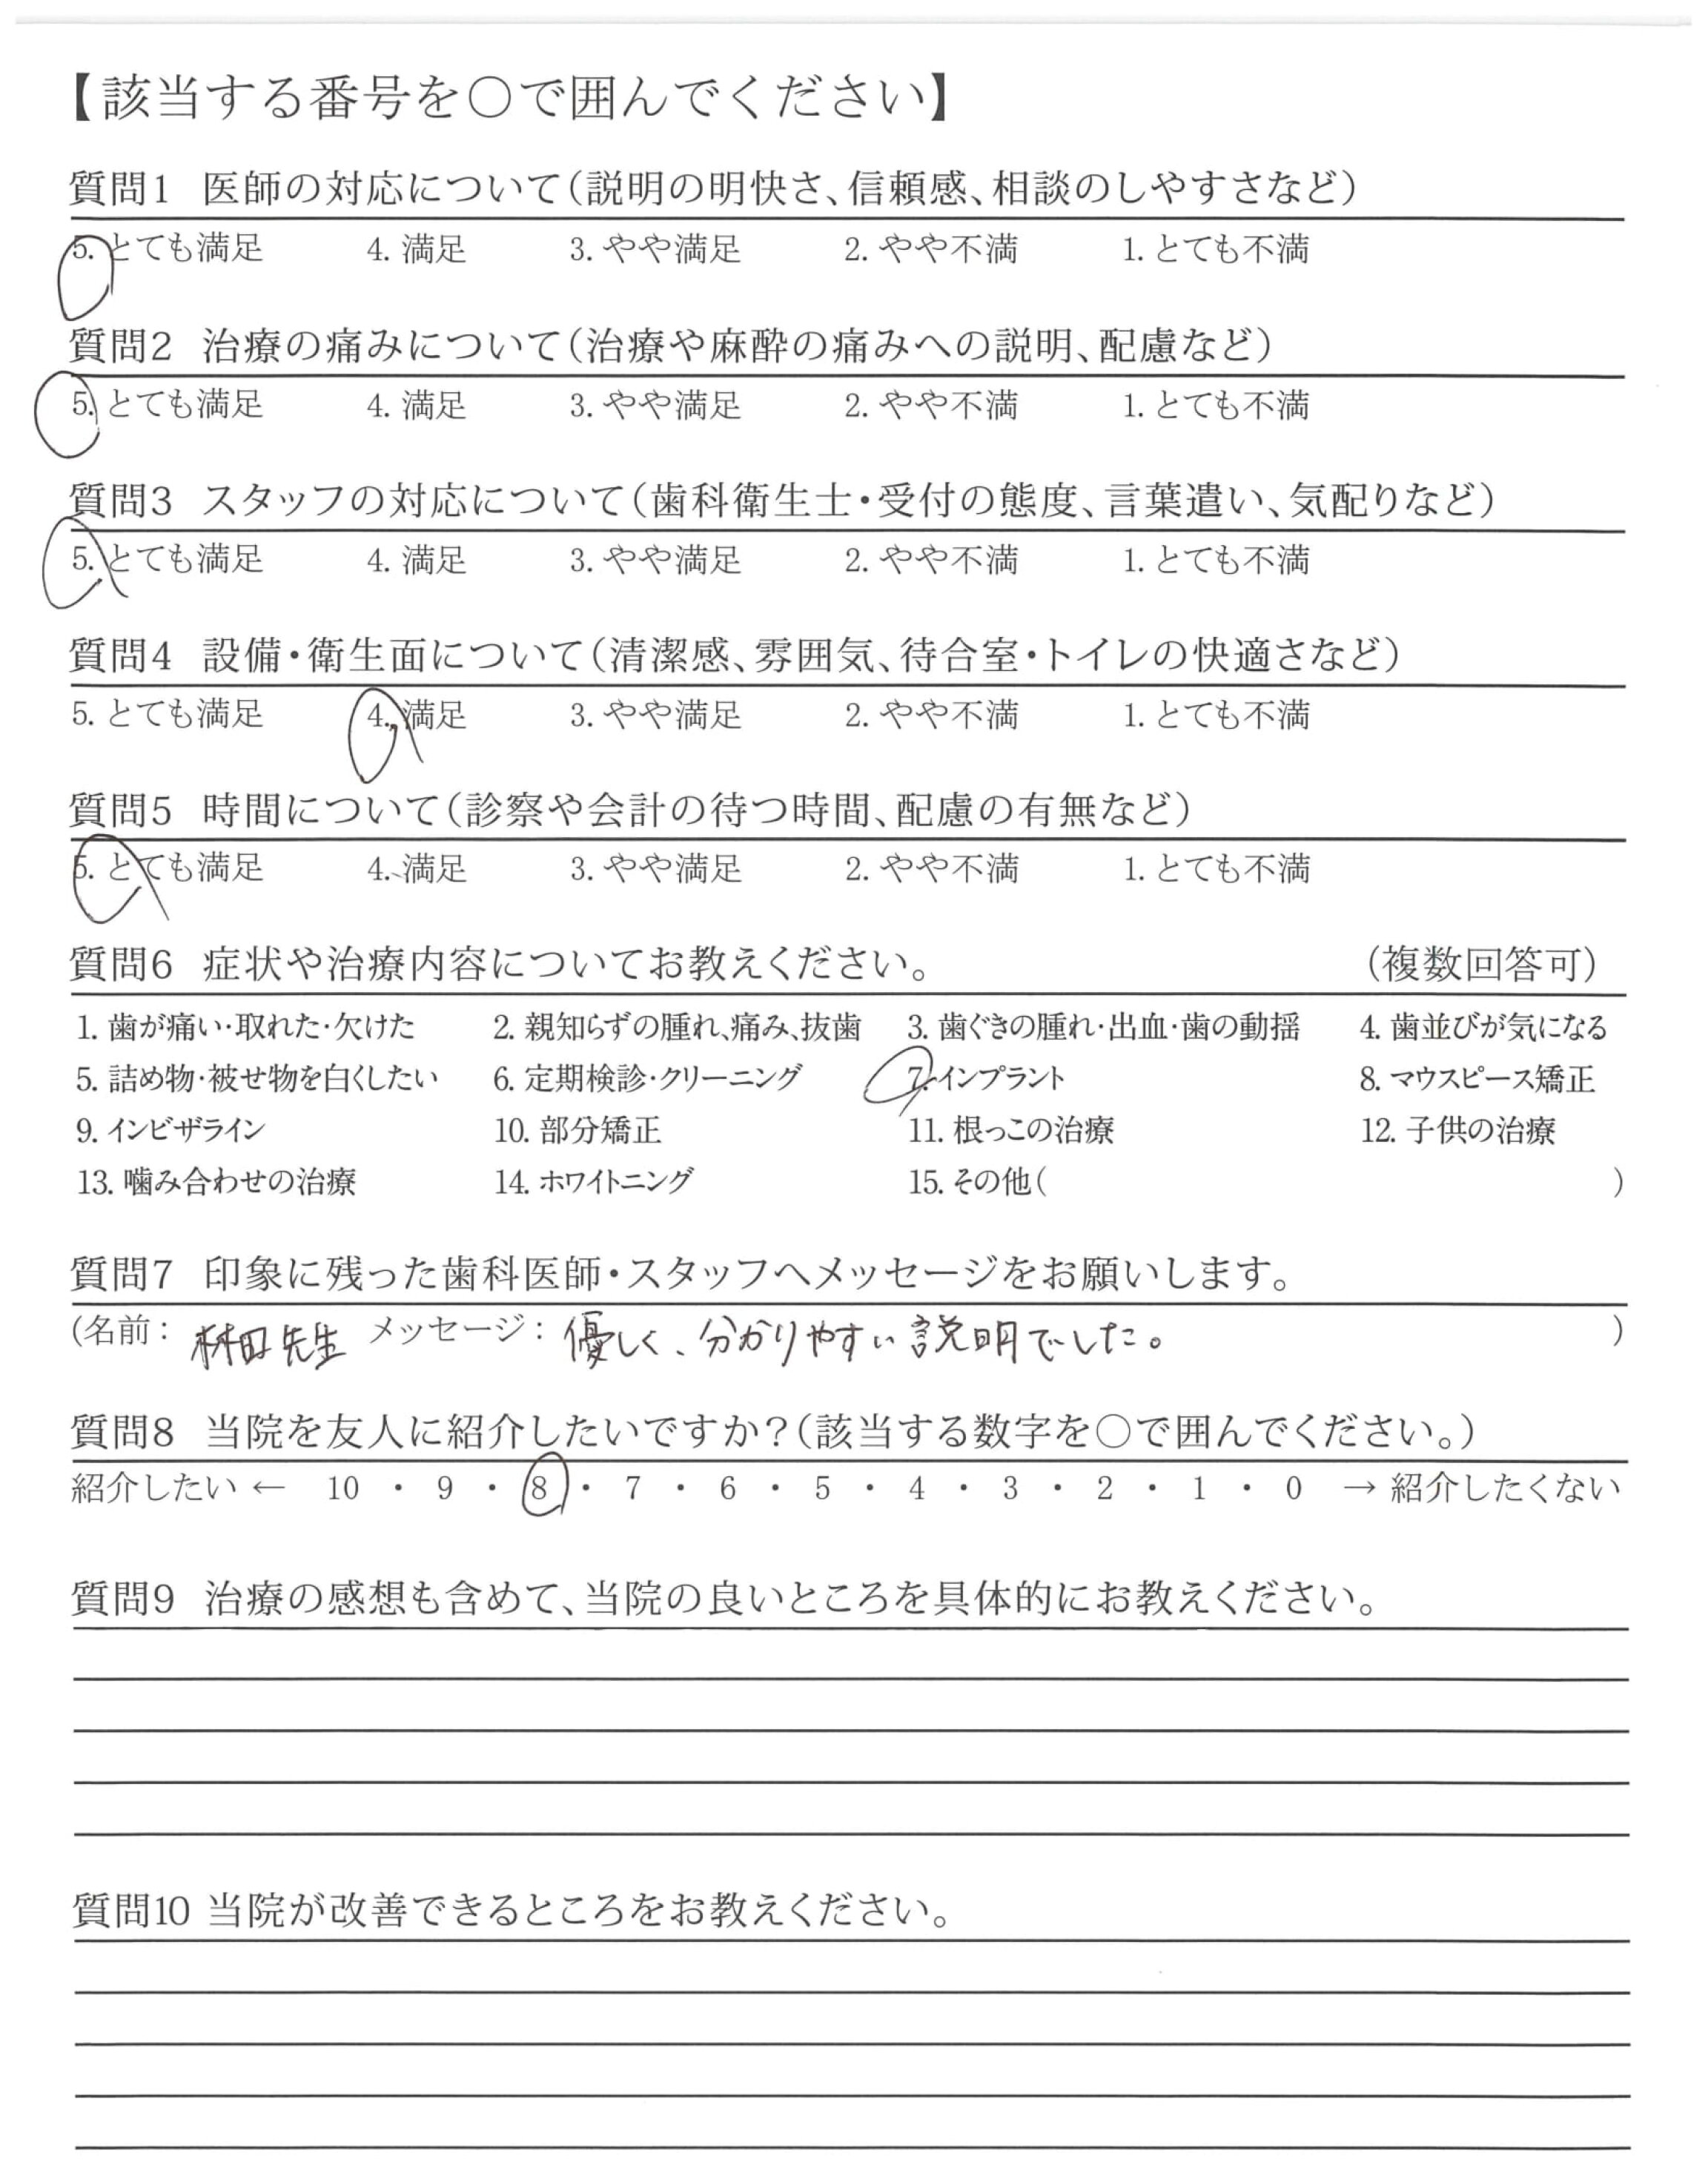 【該当する番号を○で囲んでください】
質問1 医師の対応について（説明の明快さ、信頼感、相談のしやすさなど）
5. とても満足 4. 満足 3. やや満足 2. やや不満 1. とても不満
質問2 治療の痛みについて（治療や麻酔の痛みへの説明、配慮など）
5. とても満足 4. 満足 3. やや満足 2. やや不満 1. とても不満
質問3 スタッフの対応について（歯科衛生士・受付の態度、言葉遣い、気配りなど）
5. とても満足 4. 満足 3. やや満足 2. やや不満 1. とても不満
質問4 設備・衛生面について（清潔感、雰囲気、待合室・トイレの快適さなど）
5. とても満足 4. 満足 3. やや満足 2. やや不満 1. とても不満
質問5 時間について（診察や会計の待つ時間、配慮の有無など）
5. とても満足 4. 満足 3. やや満足 2. やや不満 1. とても不満
質問6 症状や治療内容についてお教えください。 （複数回答可）
1. 歯が痛い・取れた・欠けた 2. 親知らずの腫れ、痛み、抜歯 3. 歯ぐきの腫れ・出血・歯の動揺 4. 歯並びが気になる
5. 詰め物・被せ物を白くしたい 6. 定期検診・クリーニング 7. インプラント 8. マウスピース矯正
9. インビザライン 10. 部分矯正 11. 根っこの治療 12. 子供の治療
13. 噛み合わせの治療 14. ホワイトニング 15. その他（ ）
質問7 印象に残った歯科医師・スタッフへメッセージをお願いします。
（名前： 先生 メッセージ： 優しく、分かりやすい説明でした。 ）
質問8 当院を友人に紹介したいですか？（該当する数字を○で囲んでください。）
紹介したい ← 10 ・ 9 ・ 8 ・ 7 ・ 6 ・ 5 ・ 4 ・ 3 ・ 2 ・ 1 ・ 0 → 紹介したくない
質問9 治療の感想も含めて、当院の良いところを具体的にお教えください。
質問10 当院が改善できるところをお教えください。